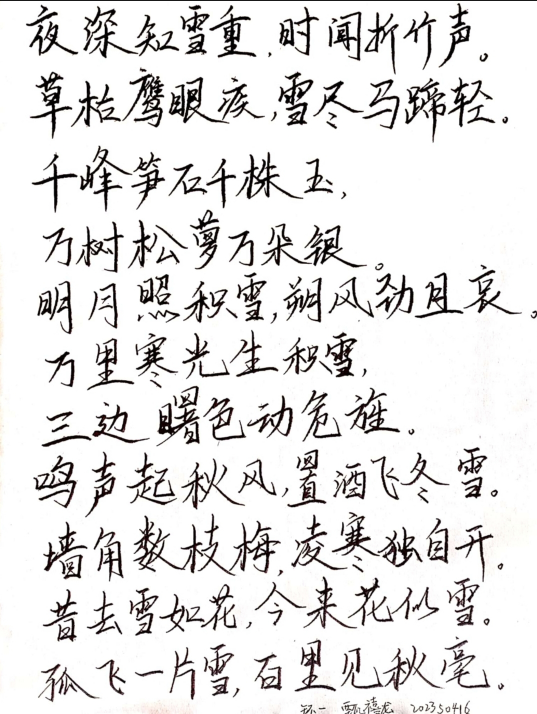 夜深知雪重,时闻折竹声。
草枯鹰眼疾,雪尽马蹄轻。
千峰笋石千株玉,
万树松萝万朵银。
明月照积雪,朔风劲且哀。
万里寒光生积雪,
三边曙色动危旌。
鸣声起秋风,置酒飞冬雪。
墙角数枝梅,凌寒独自开。
昔去雪如花,今来花似雪。
孤飞一片雪,百里见秋毫。
甄禧龙 202350416